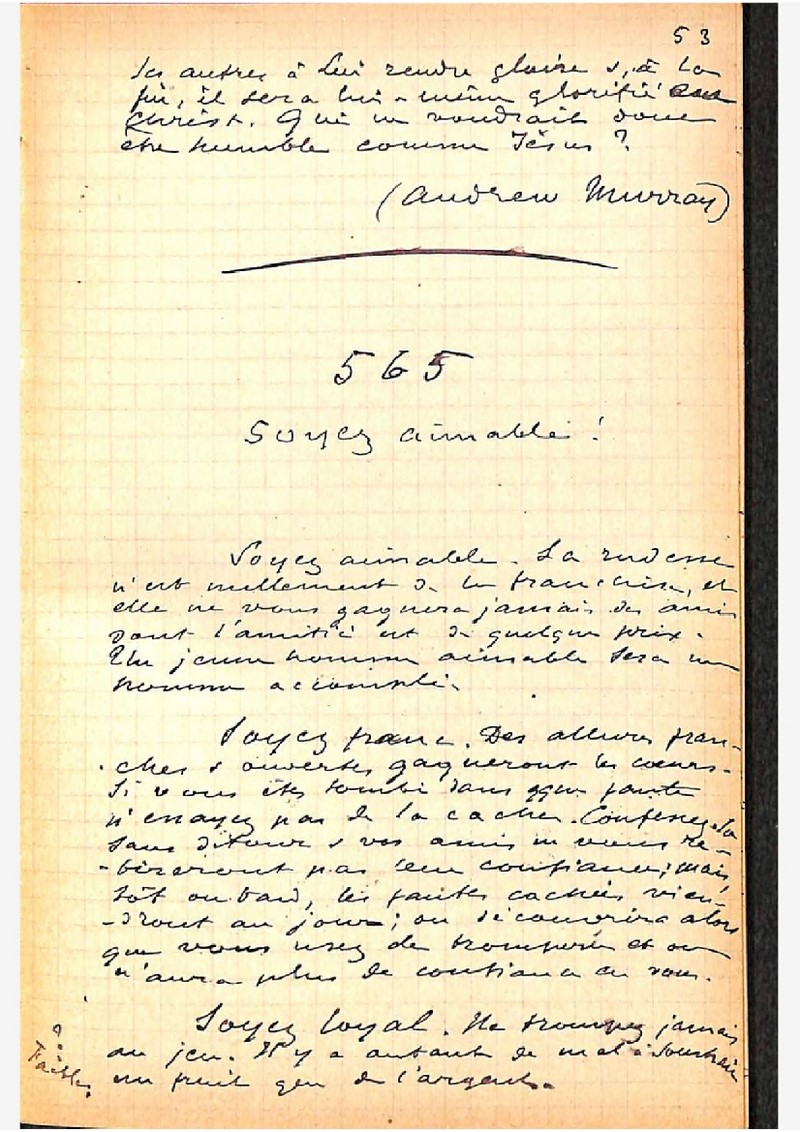 53
les autres à Lui rendre gloire &, à la
fin, il sera lui-même glorifié
Christ. Qui ne voudrait donc
être humble comme Jésus ?
(Andrew Murray)
565
Soyez aimable !
Soyez aimable. La rudesse
n'est nullement de la franchise, et
elle ne vous gagnera jamais des amis
dont l'amitié est de quelque prix.
Un jeune homme aimable sera un
homme accompli.
Soyez franc. Des allures fran-
ches & ouvertes gagneront les cœurs.
Si vous êtes tombé dans qque faute
n'essayez pas de la cacher. Confessez-la
sans détour & vos amis ne vous re-
-tireront pas leur confiance; mais,
tôt ou tard, les fautes cachées vien-
-dront au jour; on découvrira alors
que vous usez de tromperie et on
n'aura plus de confiance en vous.
Soyez loyal. Ne trompez jamais
au jeu. Il y a autant de mal à soustraire
un fruit que de l'argent.